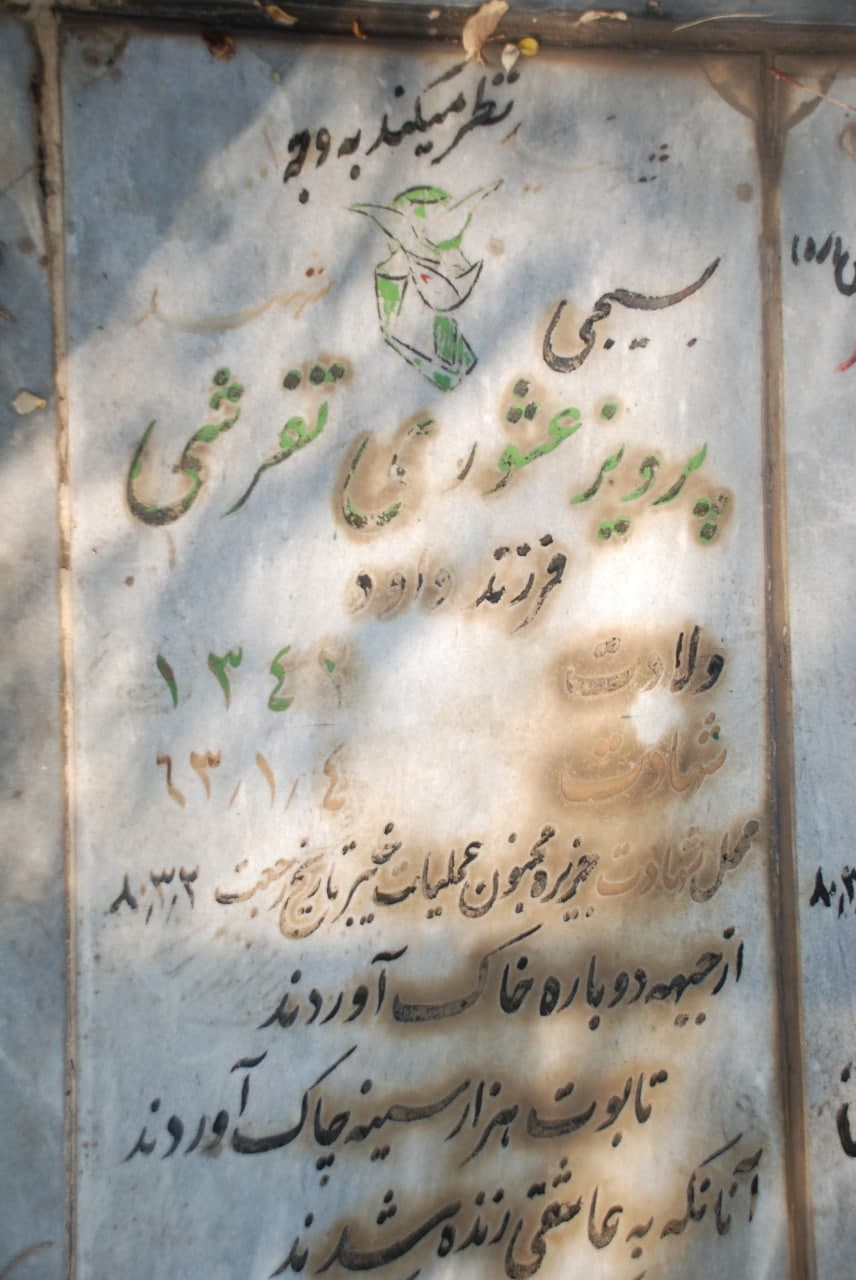 شهید نظر میکند به وجه
شهید
بسیجی
پرویز عشوری تفرشی
فرزند داود
ولادت ۱۳۴۲
شهادت ۶۳٫۱٫۴
محل شهادت جزیره مجنون عملیات خیبر تاریخ رجعت ۸۰٫۳٫۲
از جبهه دوباره خاک آوردند
تابوت هزار سینه چاک آوردند
آنانکه به عاشقی زنده شدند